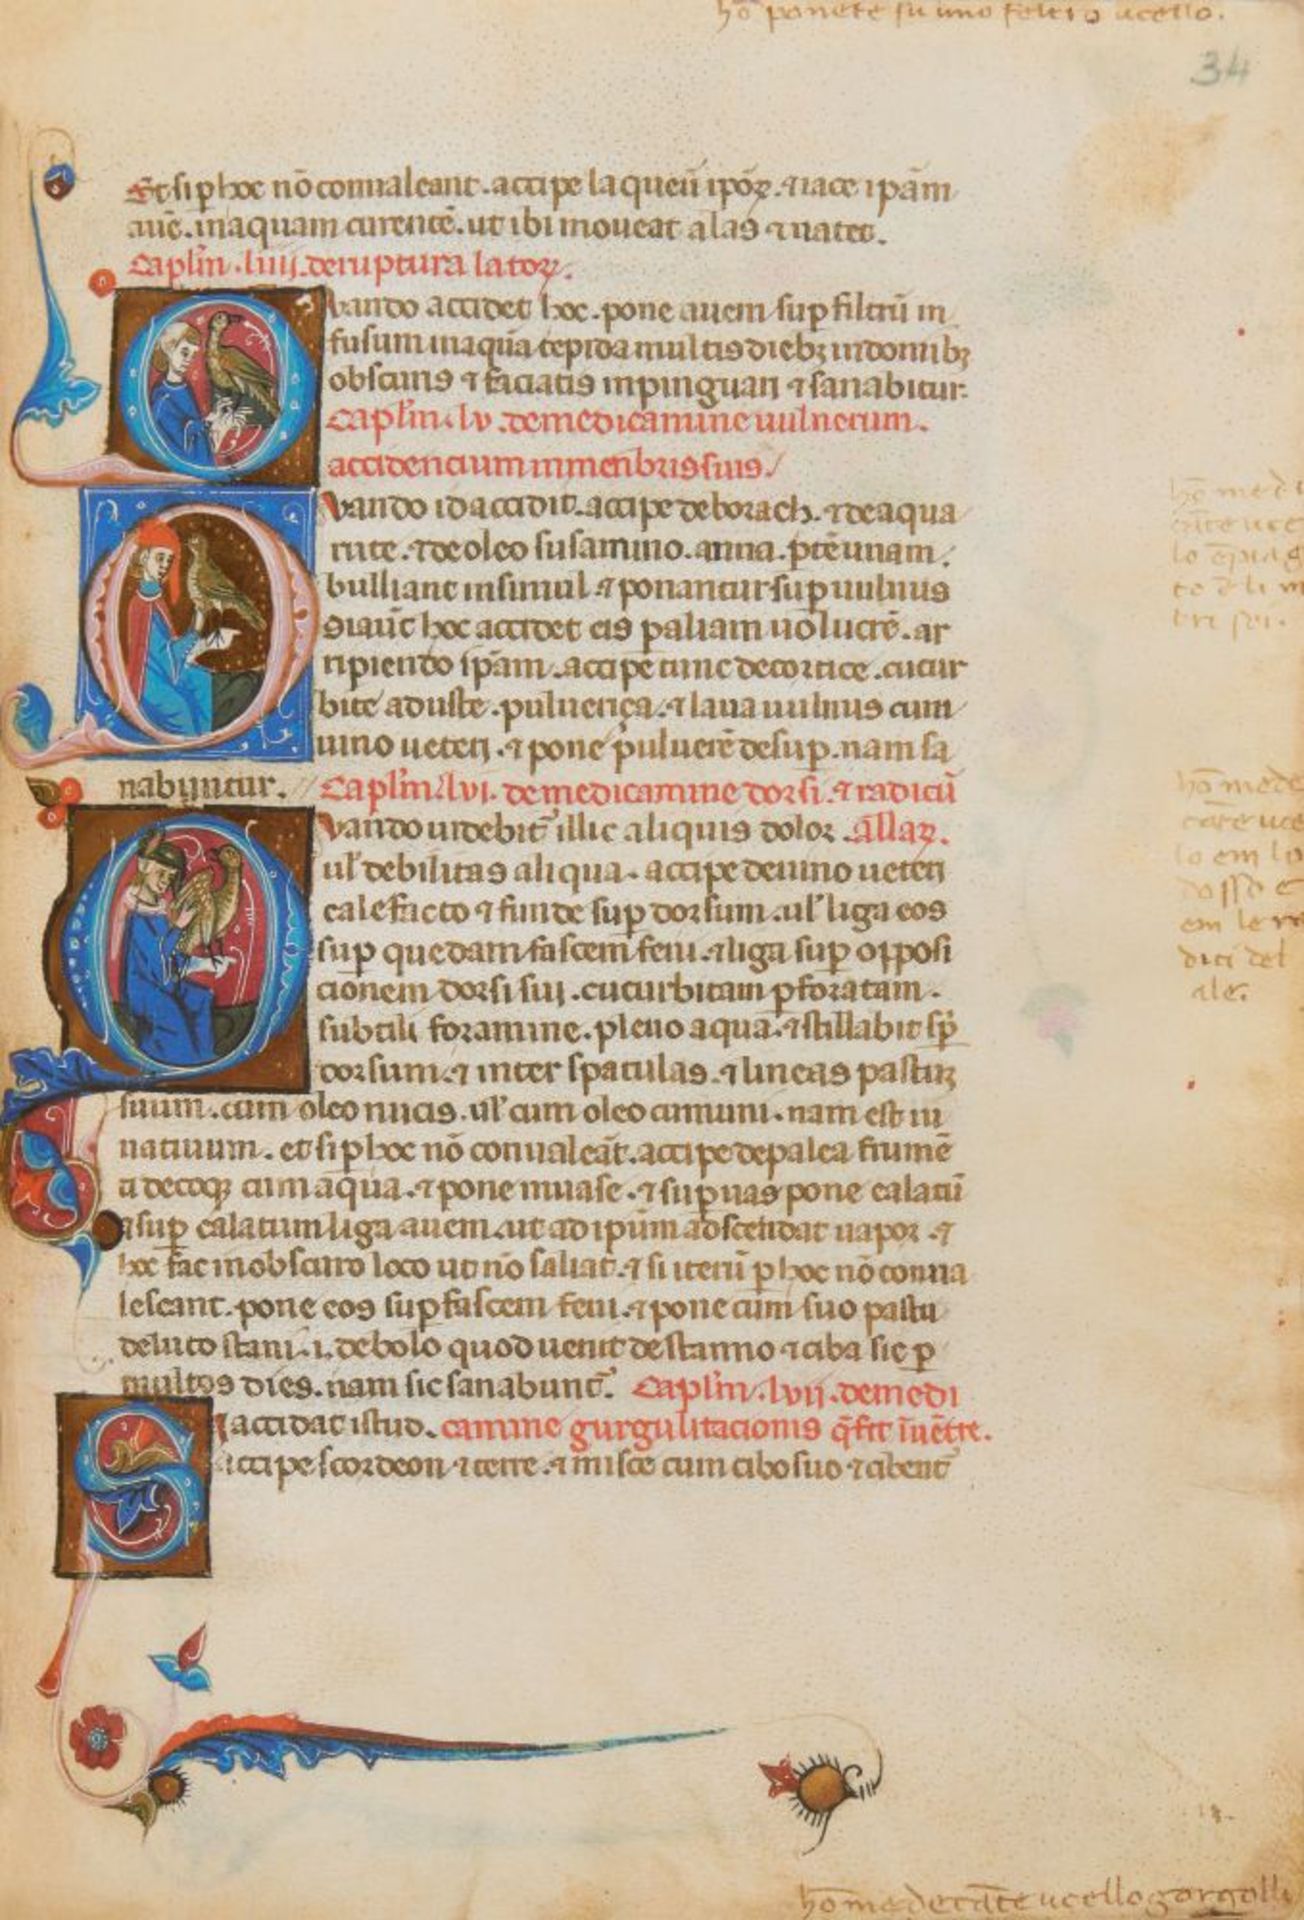 hō ponete su uno feltro ucello.
34
Et si p hoc nō conualeant. accipe laqueū ipōꝝ. ⁊ iace ipām
auē. in aquam currentē. ut ibi moueat alas ⁊ natet.
Caplm̄. liiij. de ruptura latoꝝ.
Quando accidet hoc. pone auem sup filtrū in
fusum in aqua tepida multis diebꝫ in domibꝫ
obscuris ⁊ faciatis inpinguari ⁊ sanabitur.
Caplm̄. lv. de medicamine uulnerum.
accidencium in menbris suis.
Quando id accidit. accipe de borach. ⁊ de aqua
rute. ⁊ de oleo susamino. anna. ptē unam.
bulliant insimul ⁊ ponantur sup uulnus
Si aut̄ hoc accidet eis p aliam uolucrē. ar
ripiendo ipām. accipe tunc de cortice. cucur
bite aduste. pulueriça. ⁊ laua uulnus cum
uino ueteri. ⁊ pone puluerē desup. nam sa
nabuntur. Caplm̄. lvi. de medicamine dorsi. ⁊ radicū
Quando uidebit̄ illic aliquis dolor. allaꝝ.
ul' debilitas aliqua. accipe de uino ueteri
calefacto ⁊ funde sup dorsum. ul' liga eos
sup quedam fascem feni. ⁊ liga sup opposi
cionem dorsi sui. cucurbitam pforatam.
subtili foramine. pleno aqua. ⁊ stillabit sp̄
dorsum. ⁊ inter spatulas. ⁊ lineas pastuꝫ
suum. cum oleo nucis. ul' cum oleo cimuni. nam est iu
natiuum. et si p hoc nō conualeāt. accipe de palea frumē
ti decoq; cum aqua. ⁊ pone in uase. ⁊ sup uas pone calatū
⁊ sup calatum liga auem. ut ad ipūm adscendat uapor. ⁊
hoc fac in obscuro loco ut nō saliat. ⁊ si iterū p hoc nō conua
lescant. pone eos sup fascem feni. ⁊ pone cum suo pastu
de luto stani. i. de bolo quod uenit de stanno ⁊ ciba sic p
multos dies. nam sic sanabunt̄. Caplm̄. lvii. de medi
Si accidat istud. camine gurgulitacionis q̄ fit ī uētre.
accipe scordeon ⁊ terre. ⁊ misce cum cibo suo ⁊ cibent̄
hō medi
cāte uce
lo
to d li m
bri soi.
hō mede
cāte uce
lo em lo
dosso e
em le ra
dici del
ale.
hō medecāte ucello gorgolli